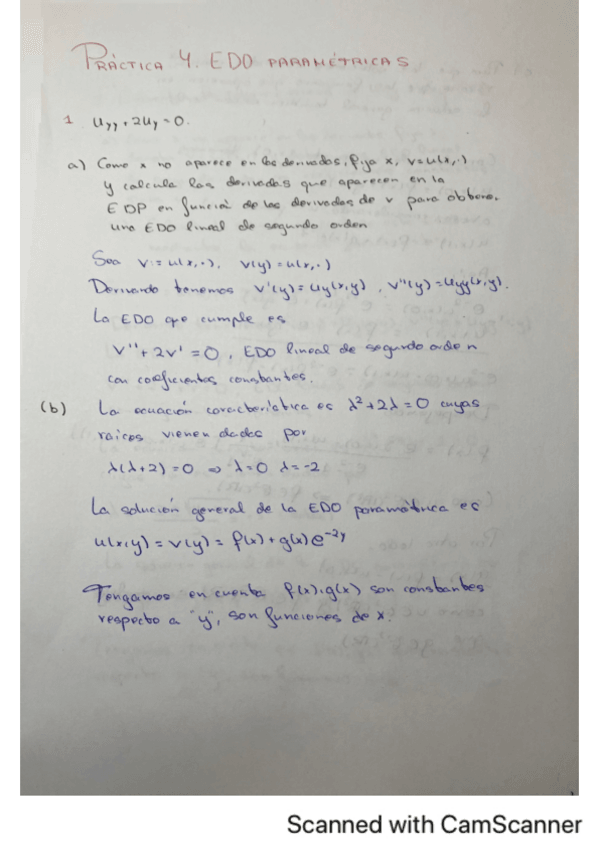 PRÁCTICA 4. EDO PARAMÉTRICAS
1 Uyy + 2Uy = 0.
a) Como x no aparece en las derivadas, fija x, v=u(x,·)
y calcula las derivadas que aparecen en la
EDP en función de las derivadas de v para obtener
una EDO lineal de segundo orden
Sea v:=u(x,·), v(y)=u(x,·)
Derivando tenemos v'(y)=uy(x,y), v''(y)=uyy(x,y).
La EDO que cumple es
v''+2v'=0, EDO lineal de segundo orden
con coeficientes constantes.
(b) La ecuación característica es λ²+2λ=0 cuyas
raices vienen dadas por
λ(λ+2)=0 ⇒ λ=0 λ=-2
La solución general de la EDO paramétrica es
u(x,y)=v(y)=f(x)+g(x)e^-2y
Tengamos en cuenta f(x),g(x) son constantes
respecto a "y", son funciones de x.
Scanned with CamScanner